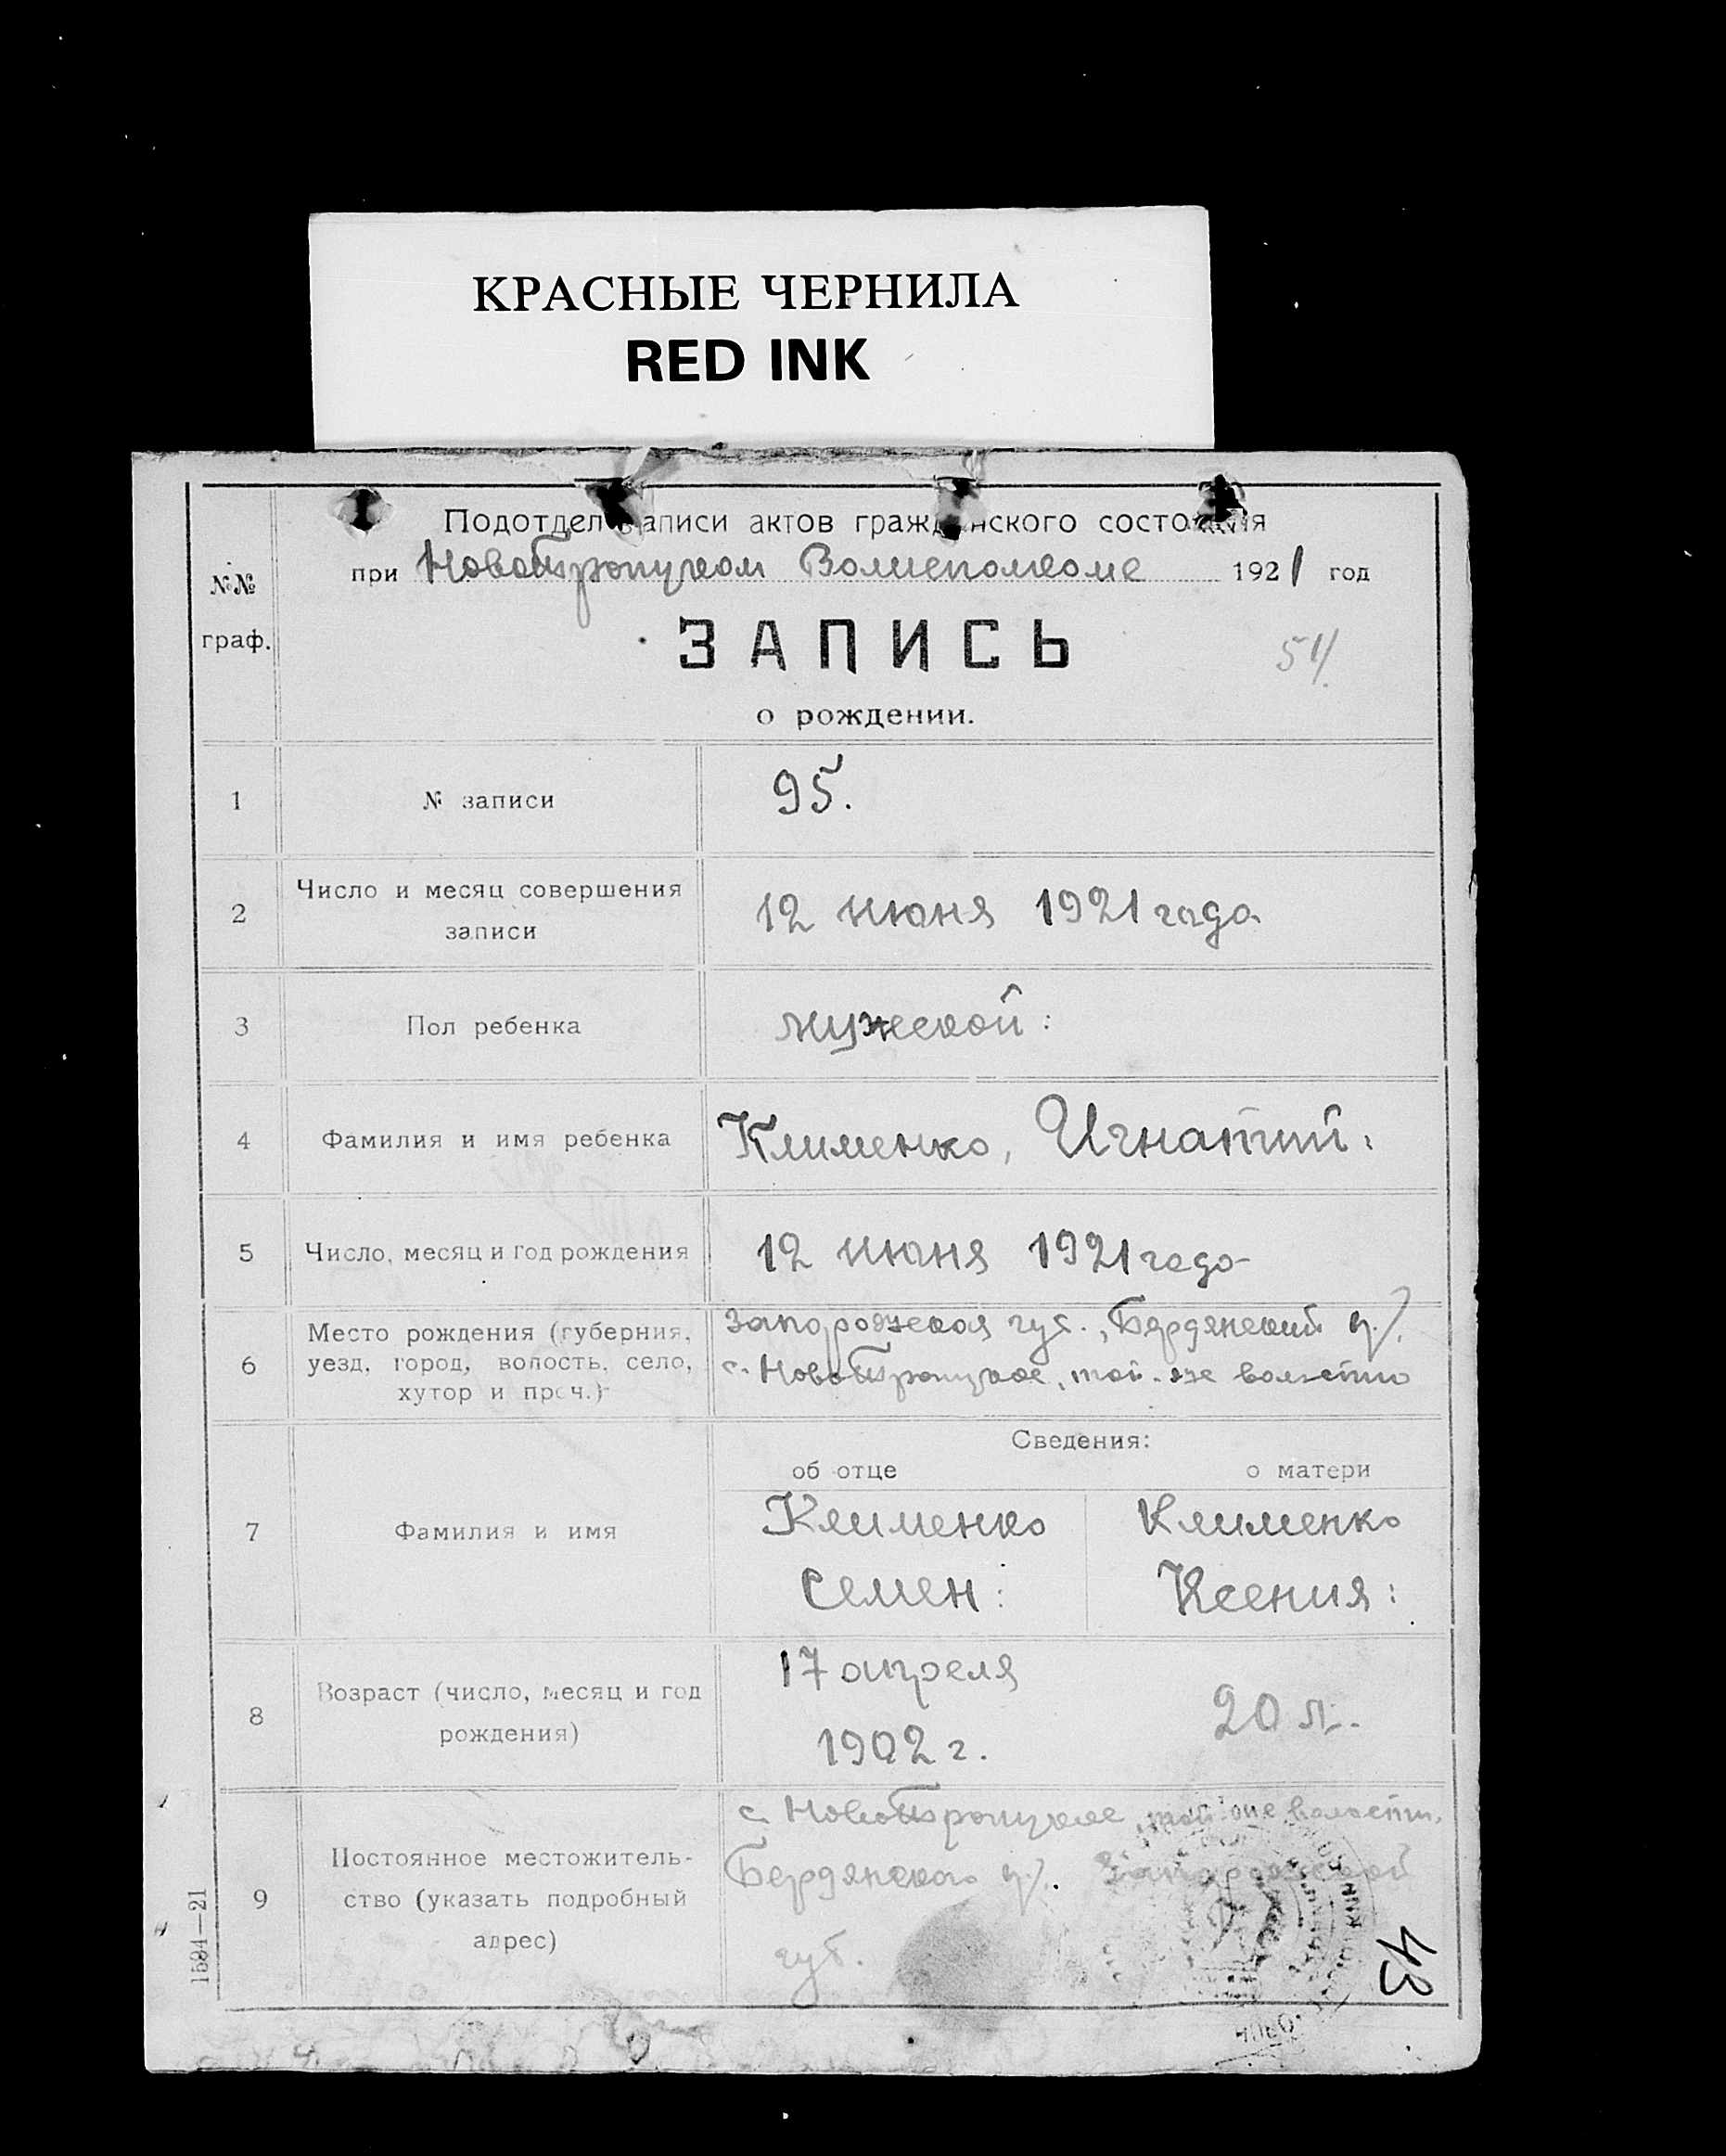 КРАСНЫЕ ЧЕРНИЛА
RED INK
Подотдел записи актов гражданского состояния
при Новотроицком Волисполкоме 1921 год
№№ граф.
ЗАПИСЬ
о рождении.
1 № записи 95.
2 Число и месяц совершения записи 12 июня 1921 года
3 Пол ребенка мужской:
4 Фамилия и имя ребенка Клименко, Игнатий:
5 Число, месяц и год рождения 12 июня 1921 года
6 Место рождения (губерния, уезд, город, волость, село, хутор и проч.)
Запорожская губ., Бердянский у/.
с. Новотроицкое, той-же волости
Сведения:
об отце о матери
7 Фамилия и имя
Клименко Клименко
Семен: Ксения:
8 Возраст (число, месяц и год рождения)
17 апреля
1902 г. 20 л.
9 Постоянное местожительство (указать подробный адрес)
с. Новотроицкое, той же волости,
Бердянского у/. Запорожской
губ.
43
1594—21